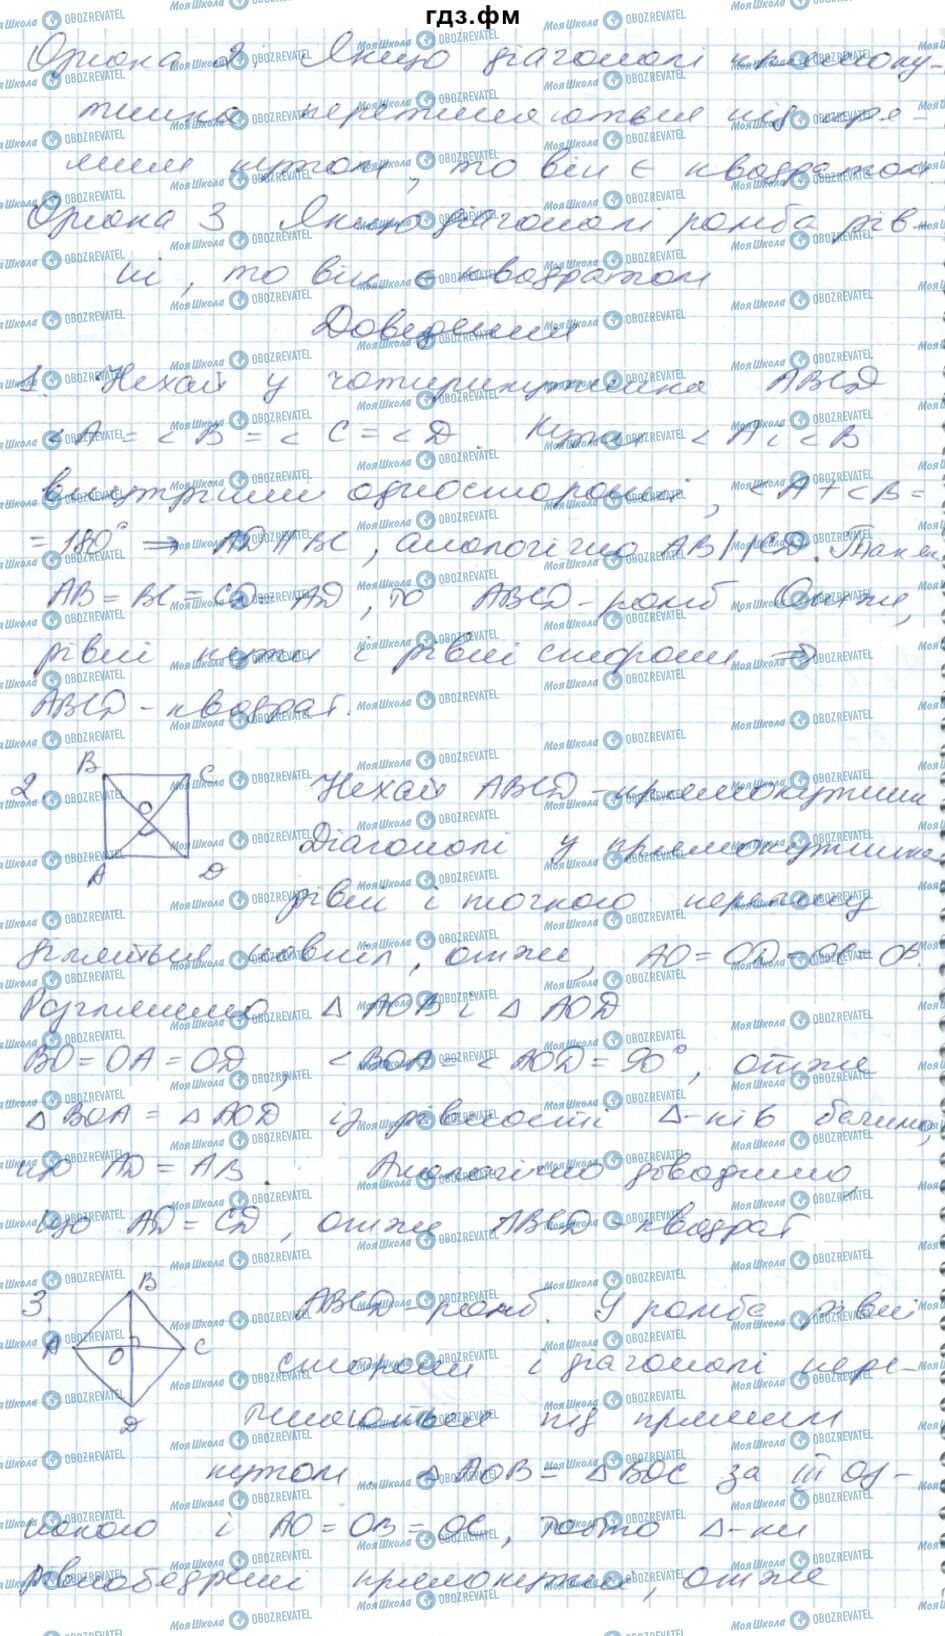 гдз.фм
Ознака 2. Якщо діагоналі прямоку-
тника перетинаються під пря-
мим кутом, то він є квадратом
Ознака 3 Якщо діагоналі ромба рів-
ні, то він є квадратом
Доведення
1. Нехай у чотирикутника ABCD
<A = <B = <C = <D. Кути <A і <B
внутрішні односторонні, <A + <B =
= 180° ⇒ AD || BC, аналогічно AB || CD. Так як
AB = BC = CD = AD, то ABCD - ромб. Отже,
рівні кути і рівні сторони ⇒
ABCD - квадрат.
2. B C Нехай ABCD - прямокутник
O Діагоналі у прямокутника
A D рівні і точкою перетину
діляться навпіл, отже, AO = OD = OC = OB.
Розглянемо △ AOB і △ AOD
BO = OA = OD, <BOA = <AOD = 90°, отже
△ BOA = △ AOD із рівності △-ків бачимо,
що AD = AB. Аналогічно доводимо,
що AD = CD, отже ABCD - квадрат
3. B ABCD - ромб. У ромба рівні
A O C сторони і діагоналі пере-
D тинаються під прямим
кутом △ AOB = △ BOC за III оз-
накою і AO = OB = OC, тобто △-ки
рівнобедрені прямокутні, отже
МояШкола OBOZREVATEL